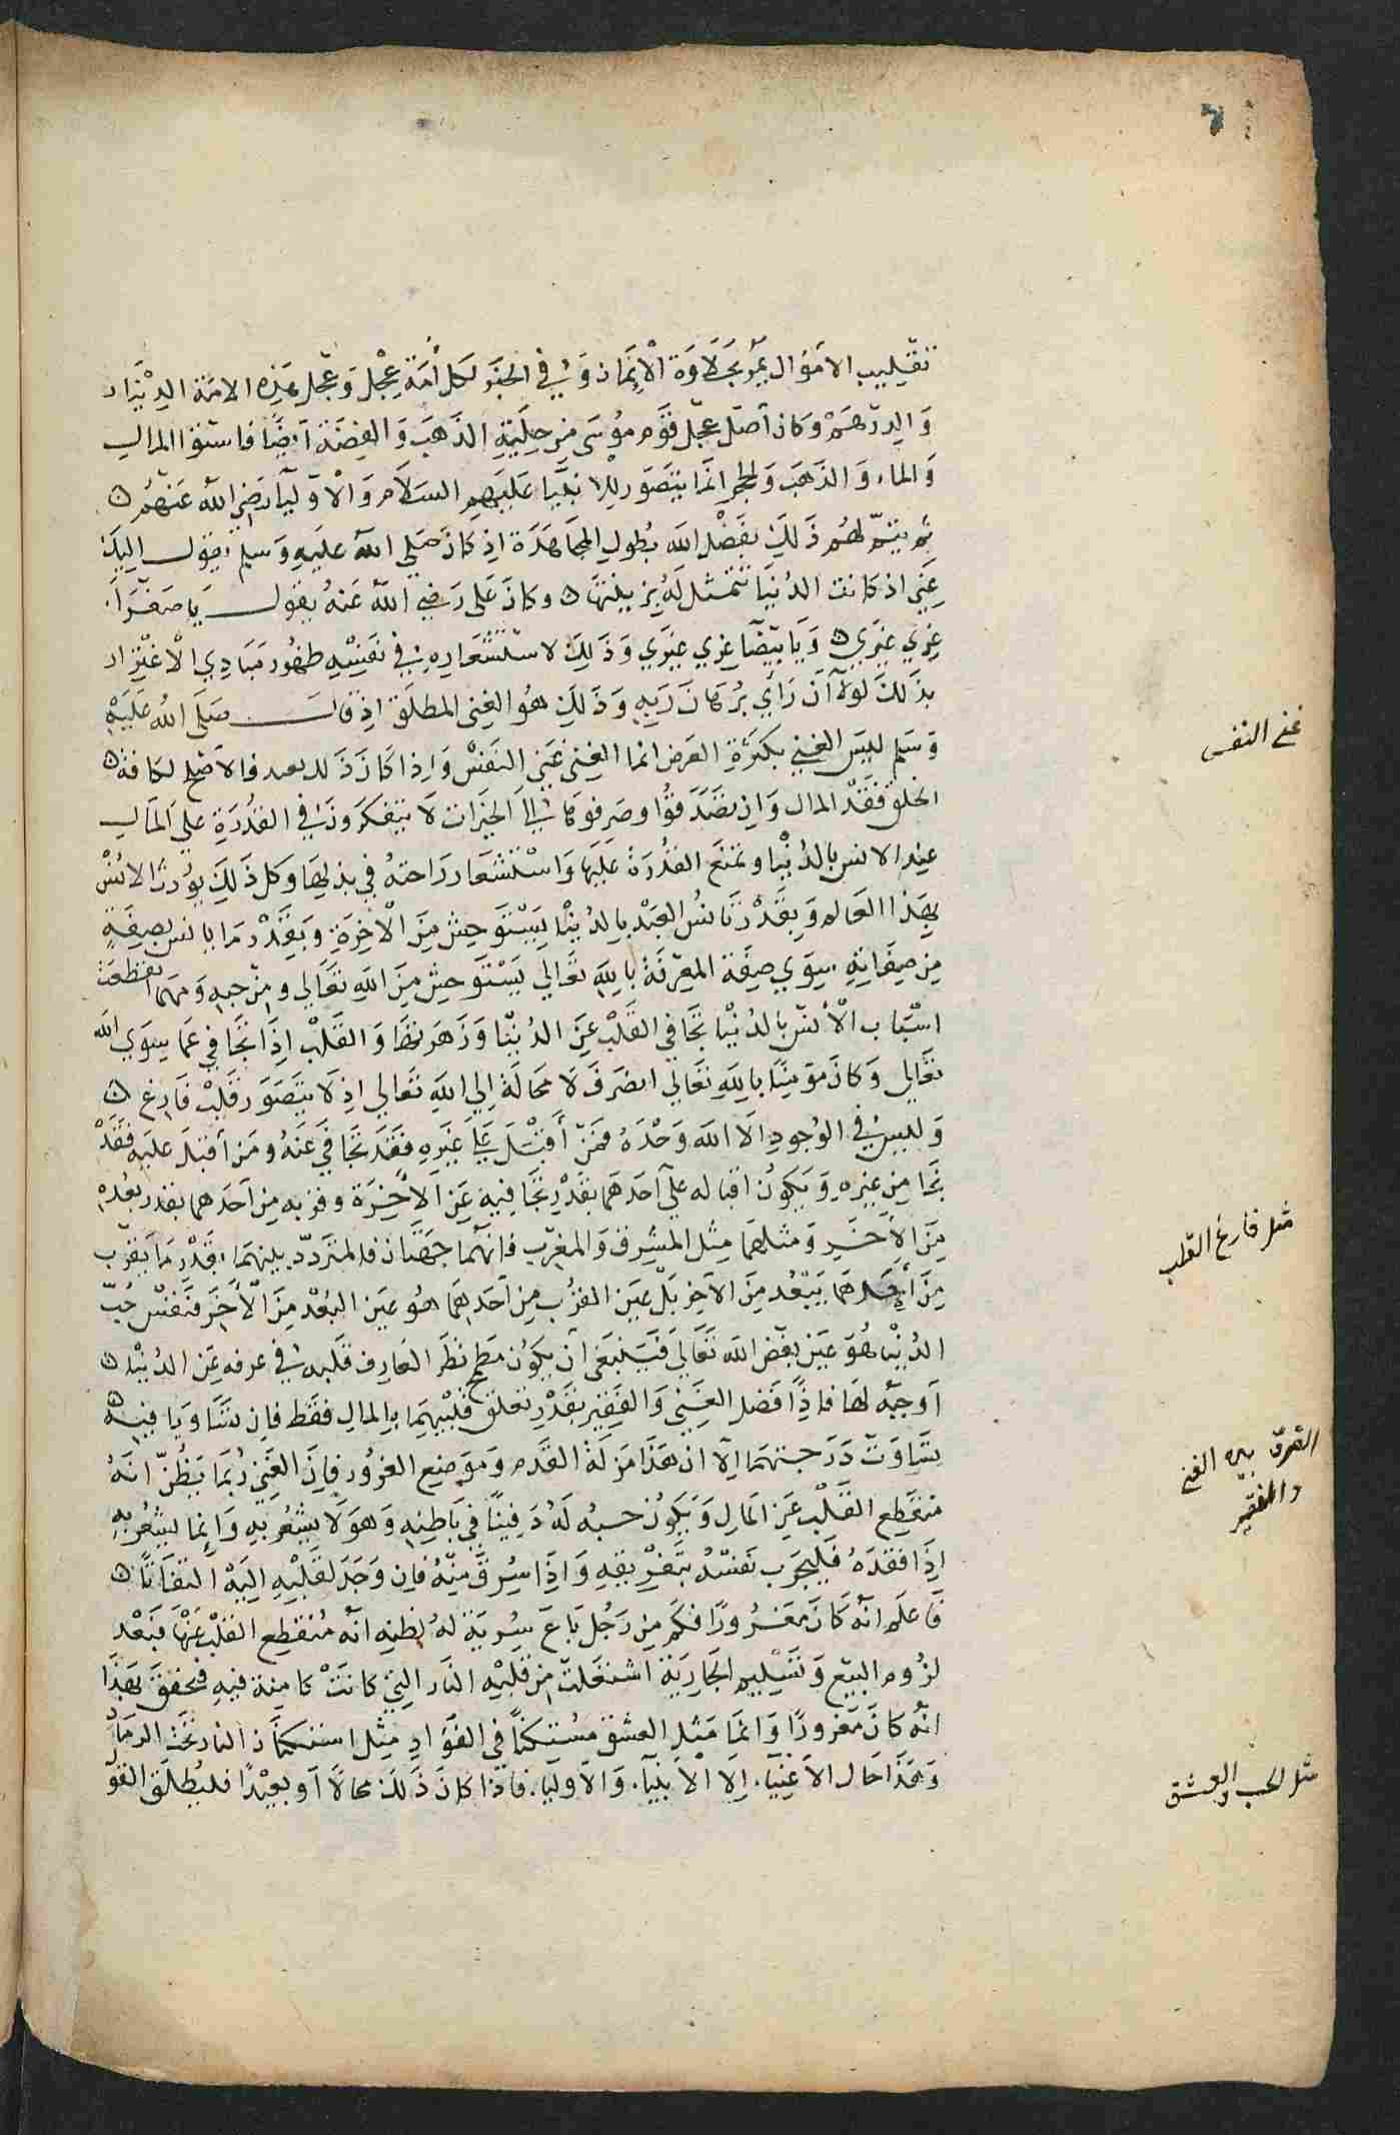 تقليب الاموال يمر بحلاوة الايمان وفي الخبر لكل أمة عجل وعجل هذه الامة الدينار
والدرهم وكان أصل عجل قوم موسى من حلية الذهب والفضة ايضا فاستوا المال
والماء والذهب والحجر انما يتصور للانبيا عليهم السلام والاوليا رضي الله عنهم
ثم يتم لهم ذلك بفضل الله بطول المجاهدة اذ كان صلى الله عليه وسلم يقول اليك
عني اذ كانت الدنيا تتمثل له بزينتها وكان على رضي الله عنه يقول يا صفرا
غري غيري ويا بيضا غري غيري وذلك لاستشعاره في نفسه ظهور مبادي الاغترار
بذلك لولا أن راي برهان ربه وذلك هو الغنى المطلق اذ قال صلى الله عليه
وسلم ليس الغني بكثرة العرض انما الغنى غني النفس واذا كان ذلك بعيد فالاصلح لكافة
الخلق فقد المال وان تصدقوا وصرفوها الى الخيرات لا ينفكون في القدرة علي المال
عن الانس بالدنيا وتمتع القدرة عليها واستشعار راحة في بذلها وكل ذلك يورث الانس
بهذا العالم وبقدر تانس العبد بالدنيا يستوحش من الاخرة وبقدر ما يانس بصفة
من صفاته سوي صفة المعرفة بالله تعالي يستوحش من الله تعالي ومن حبه ومهما انقطعت
اسباب الأنس بالدنيا تجافي القلب عن الدنيا وزهرتها والقلب اذا تجافي عما سوي الله
تعالي وكان مومنا بالله تعالي انصرف لا محالة الي الله تعالي اذ لا يتصور قلب فارغ
وليس في الوجود الا الله وحده فمن أقبل على غيره فقد تجافي عنه ومن أقبل عليه فقد
تجافا من غيره ويكون اقباله على أحدهما بقدر تجافيه عن الاخرة وقربه من أحدهما بقدر بعده
من الأخر ومثلهما مثل المشرق والمغرب فانهما جهتان فالمتردد بينهما بقدر ما يقرب
من أحدهما يبعد من الاخر بل عين القرب من أحدهما هو عين البعد من الأخر فنفس حب
الدنيا هو عين بغض الله تعالي فينبغي أن يكون مطمح نظر العارف قلبه في عزوفه عن الدنيا
أو حبه لها فاذا فضل الغني والفقير بقدر تعلق قلبيهما بالمال فقط فان تساويا فيه
تساوت درجتهما الا ان هذا مزلة القدم وموضع الغرور فان الغني ربما يظن انه
منقطع القلب عن المال ويكون حبه له دفينا في باطنه وهو لا يشعر به وانما يشعر به
اذا فقده فليجرب نفسه بتفريقه واذا سرق منه فان وجد لقلبه اليه التفاتا
فاعلم انه كان مغرورا فكم من رجل باع سرية له لظنه انه منقطع القلب عنها فبعد
لزوم البيع وتسليم الجارية اشتعلت من قلبه النار التي كانت كامنة فيه فتحقق بهذا
انه كان مغرورا وانما مثل العشق مستكنا في الفواد مثل استكنان النار تحت الرماد
وهذا حال الاغنيا الا الأنبيا والاوليا فاذا كان ذلك محالا أو بعيدا فليطلق القو
غنى النفس
مثل فارغ القلب
الفرق بين الغني
والفقير
مثل الحب والعشق